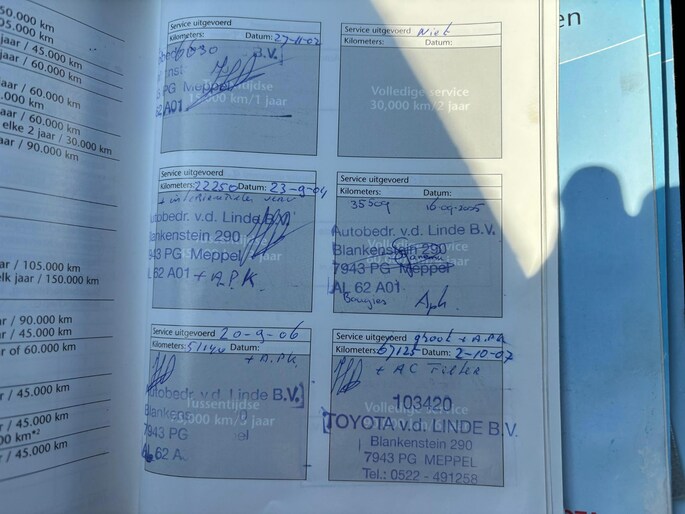 50.000 km
05.000 km
jaar / 45.000 km
jaar / 60.000 km
jaar / 60.000 km
.000 km
jaar / 60.000 km
elke 2 jaar / 30.000 km
jaar / 90.000 km
ar / 105.000 km
elk jaar / 150.000 km
ar / 90.000 km
ar / 45.000 km
ar of 60.000 km
r / 45.000 km
r / 45.000 km
00 km*2
r / 45.000 km
Service uitgevoerd
Kilometers: Datum: 27-11-02
B.V.
PG Meppel
62 A01
km/1 jaar
Service uitgevoerd Niet
Kilometers: Datum:
Volledige service
30,000 km/2 jaar
Service uitgevoerd
Kilometers: 22250 Datum: 23-9-04
Autobedr. v.d. Linde B.V.
Blankenstein 290
7943 PG Meppel
AL 62 A01 + A.P.K.
Service uitgevoerd
Kilometers: Datum:
35509 16-09-2005
Autobedr. v.d. Linde B.V.
Blankenstein 290
7943 PG Meppel
AL 62 A01
Bougies Apk
Service uitgevoerd 20-9-06
Kilometers: Datum:
+ A.P.K.
Autobedr. v.d. Linde B.V.
Tussentijdse
Blankens
7943 PG el
AL 62 A.
Service uitgevoerd groot + A.P.K
Kilometers: 67125 Datum: 2-10-07
+ AC Filter
103420
TOYOTA v.d. LINDE B.V.
Blankenstein 290
7943 PG MEPPEL
Tel.: 0522 - 491258
en